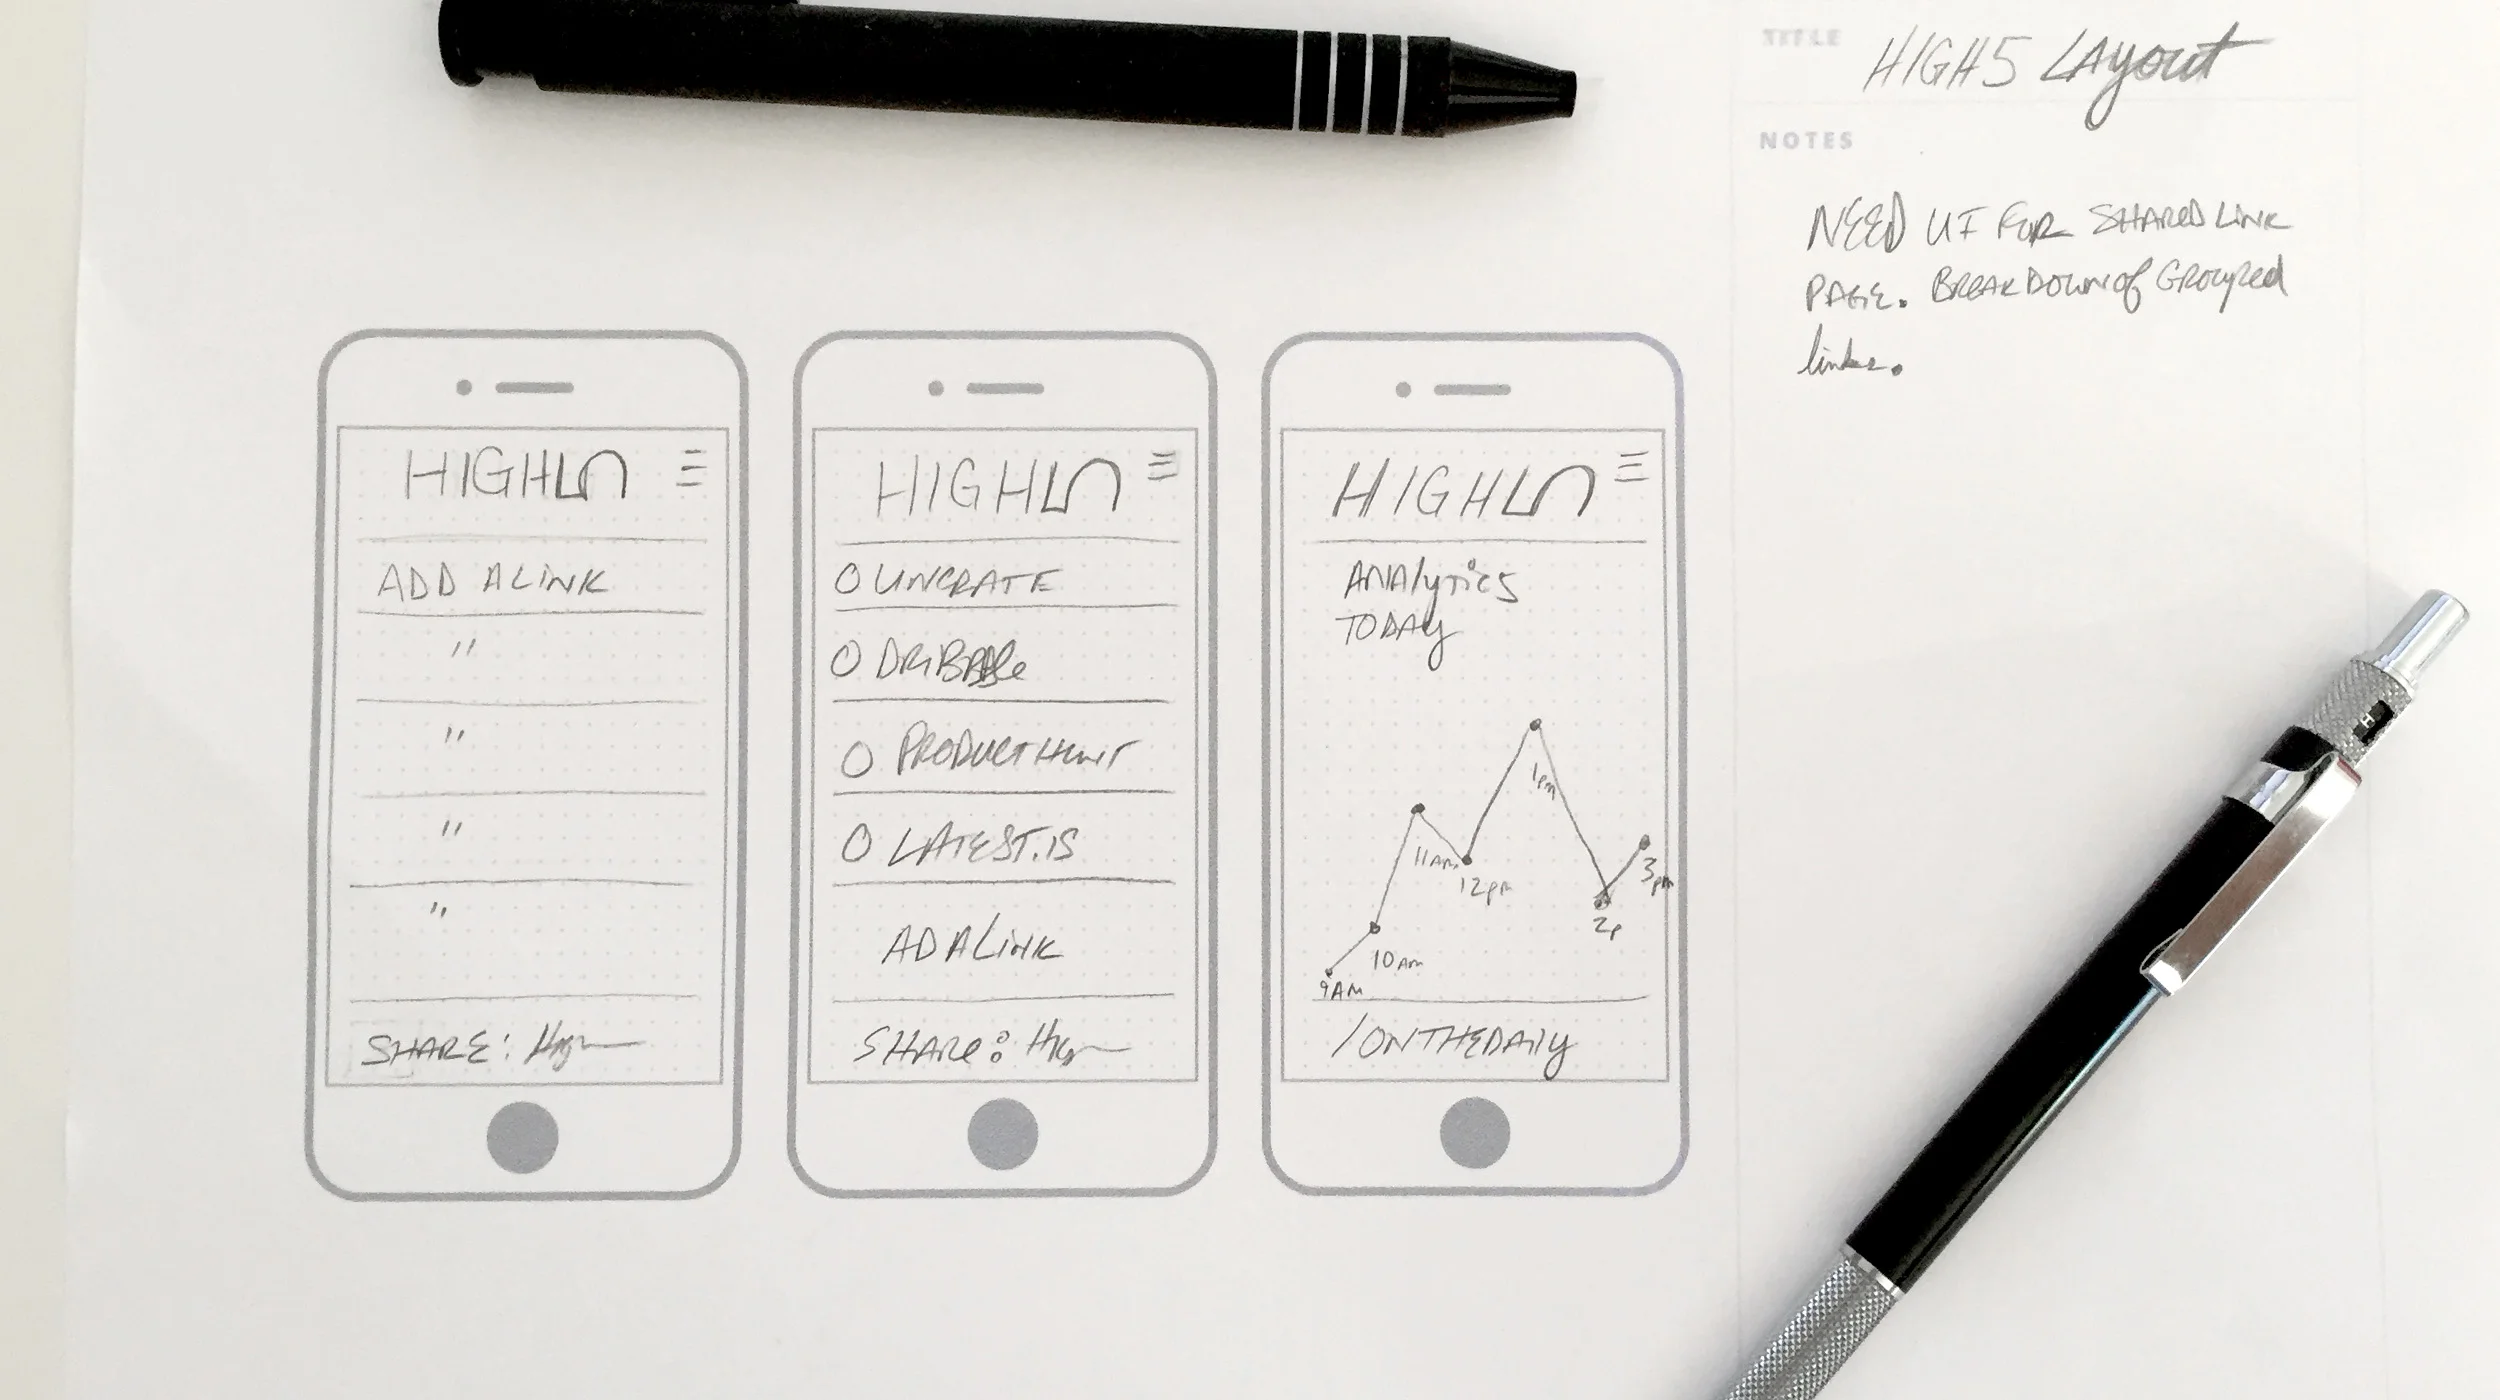 TITLE
HIGH5 LAyout
NOTES
NEED UI FOR SHARED LINK
PAGE. BREAKDOWN of GROUPED
links.
HIGH5
ADD A LINK
"
"
"
"
SHARE:
HIGH5
UNCRATE
DRIBBBle
PRODUCT HUNT
LATEST.IS
AD A LiNK
SHARe:
HIGH5
ANAlyTiCS
TODAy
9AM
10AM
11AM
12pm
1pm
2p
3pm
/ONTHEDAily
H